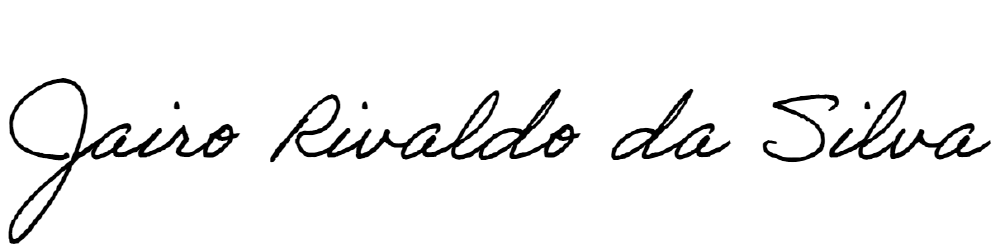 Jairo Rivaldo da Silva